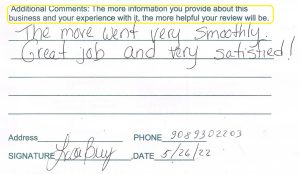 Additional Comments: The more information you provide about this
business and your experience with it, the more helpful your review will be.
The move went very smoothly.
Great job and very satisfied!
Address PHONE 9089302203
SIGNATURE DATE 5/26/22